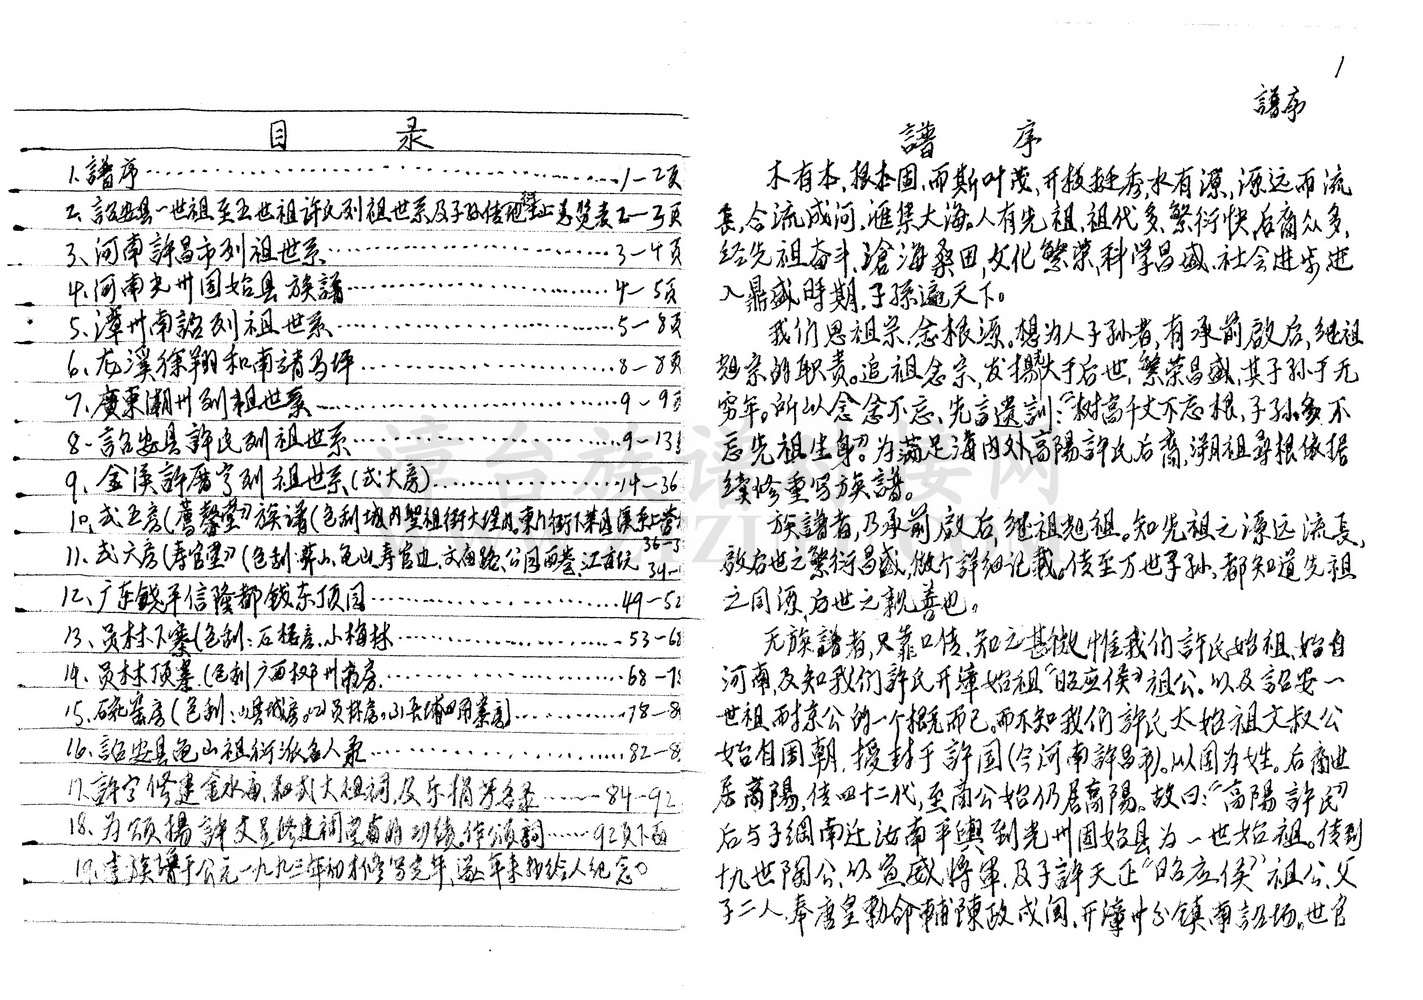 目 录
1.譜序 1—2页
2.詔安县一世祖至五世祖許氏列祖世系及子孙传 览表2—3页
3、河南許昌市列祖世系 3—4页
4.河南光州固始县族譜 4—5页
5.漳州南詔列祖世系 5—8页
6.龙溪徐翔和南靖馬坪 8—8页
7.廣東潮州列祖世系 9—9页
8.詔安县許氏列祖世系 9—13
9、金溪許 列祖世系(式大房) 14—36
10、式五房(薦馨堂)族譜(包刮城内 祖街大埕 東门街下 36—3
11、式六房(寿官望)(包刮 龟山寿官边、文庙路、公园西 、江亩坑 34—
12、广东饒平信隆都钱东顶园 49—52
13、員林下寨(包刮:石榴 、小梅林 53—68
14.員林顶寨.(包刮广西 州 68—78
15. 房(包刮:山具城房.(2)員林房.(3)  78—8
16、詔安县龟山祖衍派名人录 82—8
17.許 修建金水庙、 大祖祠及乐捐芳名录 84—92
18.为頌揚許文 修建祠堂 功績.作頌詞 92页下面
19.幸族譜于公元一九九三年初 写完毕,
1
譜序
譜 序
木有本,根本固,而斯叶茂,开枝 秀,水有源,源远而流
長,合流成河,滙集大海。人有先祖,祖代多,繁衍快,后裔众多,
经先祖奋斗,滄海桑田,文化繁荣,科学昌盛,社会進步,進
入鼎盛時期,子孫遍天下。
我们思祖宗,念根源。想为人子孙者,有承前啟后,继祖
宗的职责。追祖念宗,发揚光大于后世,繁荣昌盛,其子孙于无
穷年。所以念念不忘,先言遺訓:“树高千丈不忘根,子孙多不
忘先祖生身”。为满足海内外高陽許氏后裔,溯祖尋根依据
续修重写族譜。
族譜者,乃承前啟后,继祖 祖。知先祖之源远流長,
啟后世之繁衍昌盛,做个詳細记載。传至万世子孙,都知道先祖
之同源,后世之親善也。
无族譜者,只靠口传,知之甚微,惟我们許氏始祖,始自
河南,及知我们許氏开漳始祖“昭应侯”祖公。以及詔安一
世祖 公的一个概况而已。而不知我们許氏太始祖文叔公
始自周朝,援封于許国(今河南許昌市)。以国为姓。后裔世
居高陽,传四十二代,至 公始仍居高陽。故曰:“高陽許氏”
后与子綱南迁汝南平輿到光州固始县为一世始祖。传到
十九世陶公,以宣威将軍,及子許天正“昭应侯”祖公、父
子二人,奉唐皇勅命輔陳政戍闽,开漳州分鎮南詔場。世官